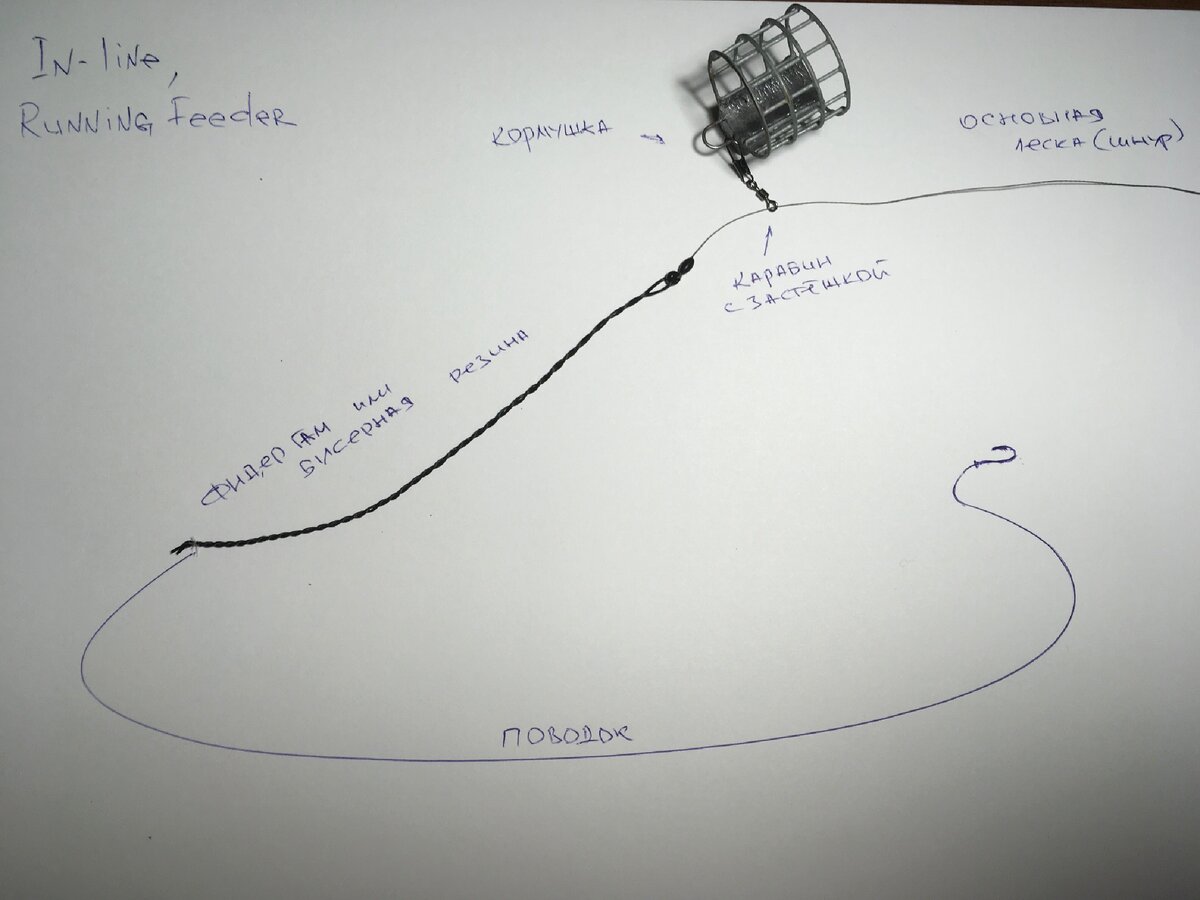 In-line,
Running Feeder
кормушка
основная
леска (шнур)
карабин
с застёжкой
фидергам или
бисерная резина
поводок